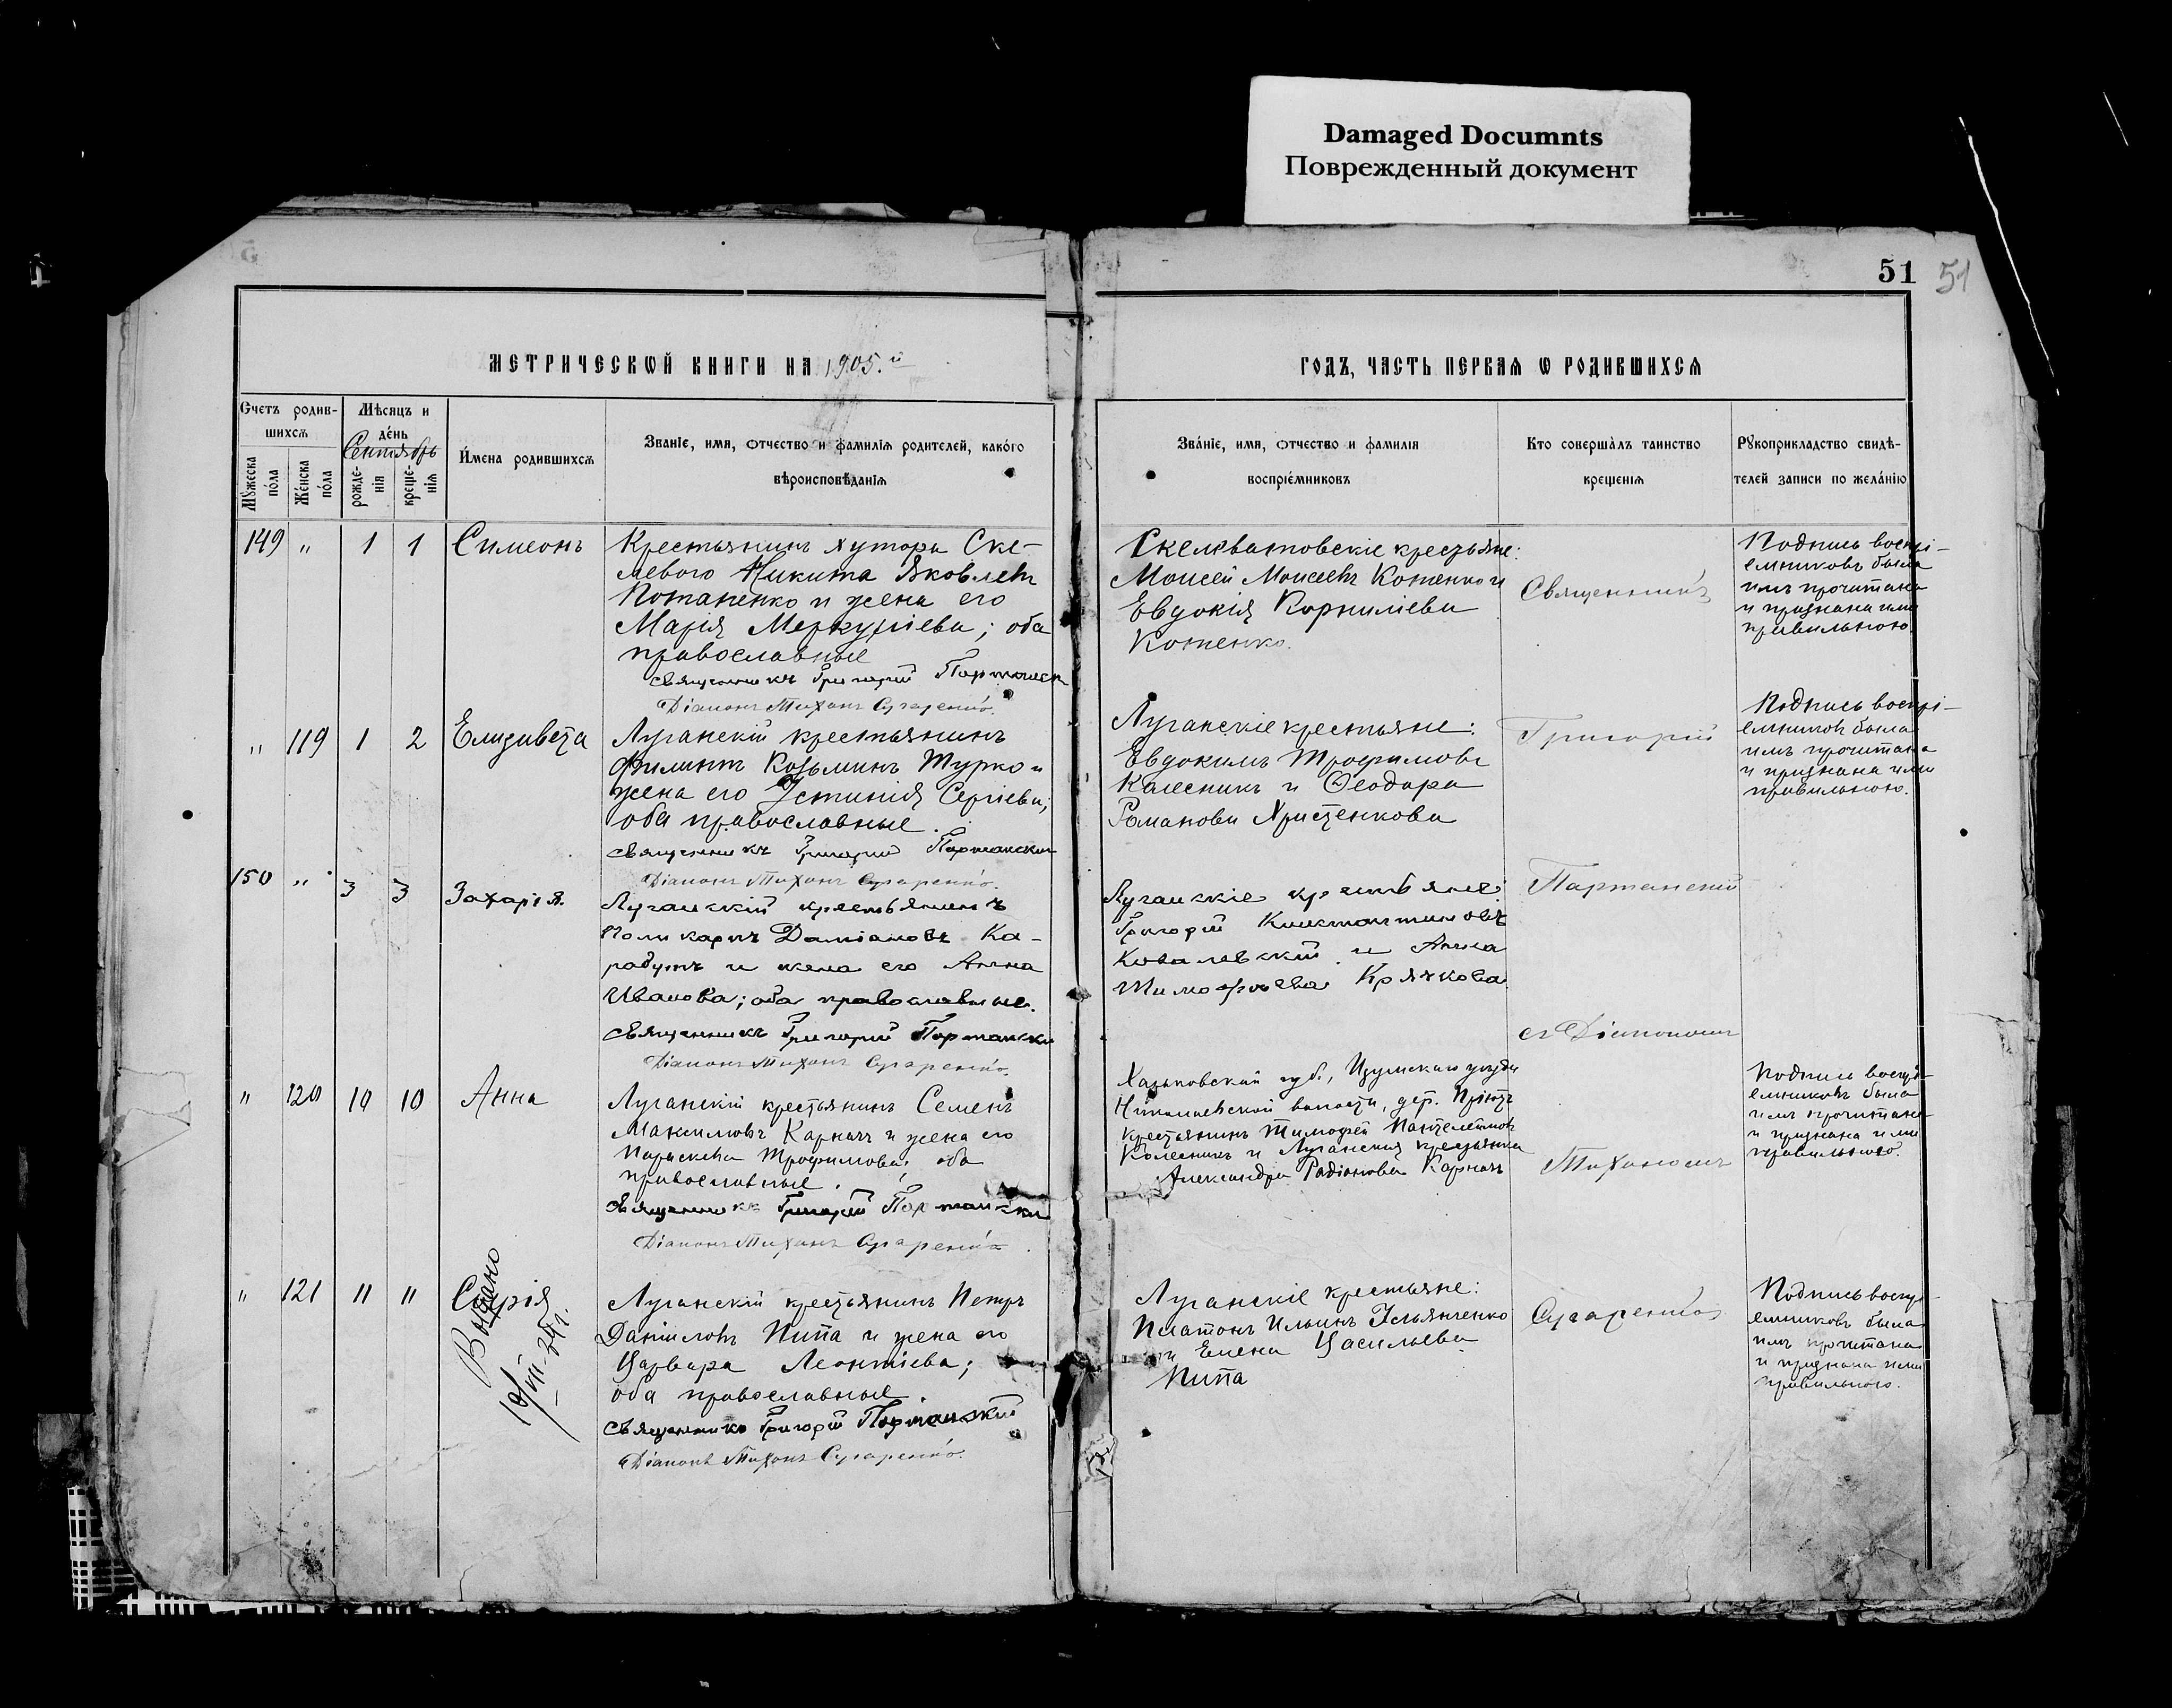 Damaged Documnts
Поврежденный документ
51 51
МЕТРИЧЕСКѠЙ КНИГИ НА 1905.й
ГОДЪ, ЧАСТЬ ПЕРВАЯ Ѡ РОДИВШИХСѦ
Счетъ родив-
шихсѧ
Мꙋжеска пола
Женска пола
Мѣсяцъ и
день
Сентябрь
рожде-
нія
креще-
нія
Имена родившихсѧ
Званіе, имя, отчество и фамилія родителей, какого
вѣроисповѣданія
Званіе, имя, отчество и фамилія
воспріемниковъ
Кто совершалъ таинство
крещенія
Рꙋкоприкладство свидѣ-
телей записи по желанію
149 " 1 1 Симеонъ
Крестьянинъ хутора Ске-
левого Никита Яковлевъ
Потапенко и жена его
Марія Меркуріева; оба
православные
священникъ Григорій
Діаконъ Тихонъ
Скелеватовскіе крестьяне:
Моисей Моисеевъ Котенко и
Евдокія Корниліева
Котенко.
Священникъ
Подпись воспрі-
емниковъ была
имъ прочитана
и признана ими
правильною.
" 119 1 2 Елизавета
Луганскій крестьянинъ
Филиппъ Козьминъ Турко и
жена его Устинія Сергіева;
оба православные.
священникъ Григорій
Діаконъ Тихонъ
Луганскіе крестьяне:
Евдокимъ Трофимовъ
Калесникъ и Ѳеодора
Романова Христенкова
Григорій
Подпись воспрі-
емниковъ была
имъ прочитана
и признана ими
правильною.
150 " 3 3 Захарія.
Луганскій крестьянинъ
Поликарпъ Даміановъ Ка-
радутъ и жена его Анна
Иванова; оба православные.
священникъ Григорій
Діаконъ Тихонъ
Луганскіе крестьяне:
Григорій Константиновъ
Ковалевскій и Анна
Тимофѣева Крячкова
Партанскій
съ Діакономъ
" 120 10 10 Анна
Луганскій крестьянинъ Семенъ
Максимовъ Карнахъ и жена его
Параскева Трофимова; оба
православные.
священникъ Григорій
Діаконъ Тихонъ
Харьковской губ., Изумскаго уѣзда
Николаевской волости, дер. Пріютъ
крестьянинъ Тимофей Пантелеймоновъ
Колесникъ и Луганская крестьянка
Александра Радіонова Карнахъ
Тихономъ
Подпись воспрі-
емниковъ была
имъ прочитана
и признана ими
правильною.
" 121 11 11
Выдано
Луганскій крестьянинъ Петръ
Даніиловъ Пипа и жена его
Варвара Леонтіева;
оба православные.
священникъ Григорій Партанскій
Діаконъ Тихонъ
Луганскіе крестьяне:
Платонъ Ильинъ Ульянченко
и Елена Васильева
Пипа
Подпись воспрі-
емниковъ была
имъ прочитана
и признана ими
правильною.